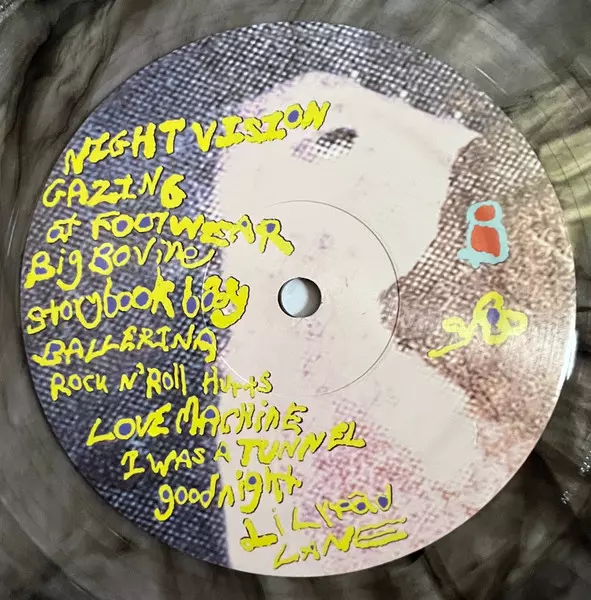 NIGHT VISION
GAZING
at FOOTWEAR
Big Bovine
storybook boy
BALLERINA
ROCK N' ROLL HURTS
LOVE MACHINE
I WAS A TUNNEL
goodnight
LANE